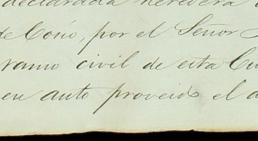 declarada heredera
de Coño, por el Señor
ramo civil de esta Ciu
en auto proveido el d